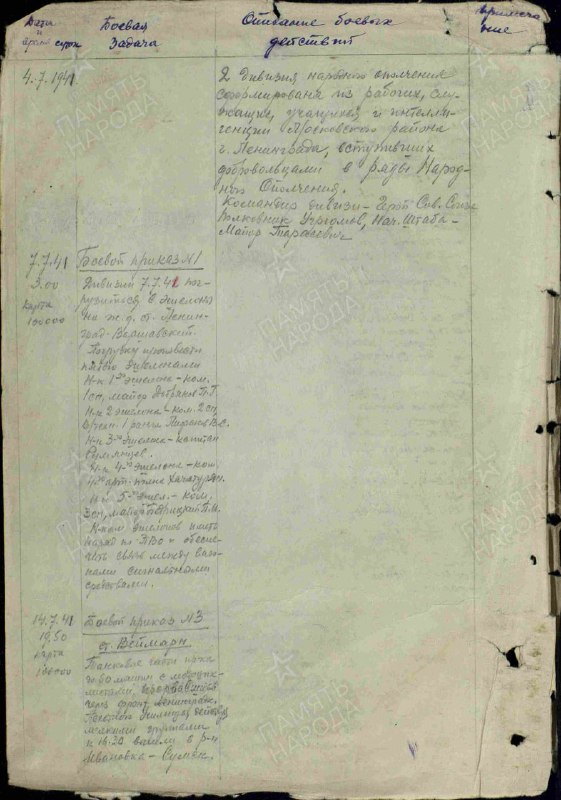 Дата
и
время суток
Боевая
Задача
Описание боевых
действий
Примеча
ние
4.7.1941
2 Дивизия народного ополчения
сформирована из рабочих, слу-
жащих, учащихся и интелли-
генции Московского района
г. Ленинграда, вступивших
добровольцами в ряды Народ-
ного Ополчения.
Командир дивизии - Герой Сов. Союза
Полковник Угрюмов, Нач. Штаба -
Майор Тарасевич
7.7.41
3.00
карта
100000
Боевой приказ №1
Дивизии 7.7.41 пог-
рузиться в эшелоны
на ж.д. ст. Ленин-
град-Варшавский.
Погрузку произвести
пятью эшелонами
Н-к 1го эшелона - ком.
1сп, майор
Н-к 2 эшелона - ком. 2сп,
1 ранга
Н-к 3го эшелона - капитан
Румянцев.
Н-к 4го эшелона - ком.
арт. полка
Н-к 5го эшел. - ком.
3сп, майор
эшелонов иметь
по ПВО и обеспе-
чить связь между ваго-
нами сигнальными
средствами.
14.7.41
19.50
карта
100000
Боевой приказ №3
ст. Веймарн
Танковые части пр-ка
до 60 машин с мотоцик-
летами, прорвавшись
через фронт
мелкими группами
и 14.30 вышли в р-н
Ивановка -
ПАМЯТЬ
НАРОДА
ПАМЯТЬ
НАРОДА
ПАМЯТЬ
НАРОДА
ПАМЯТЬ
НАРОДА